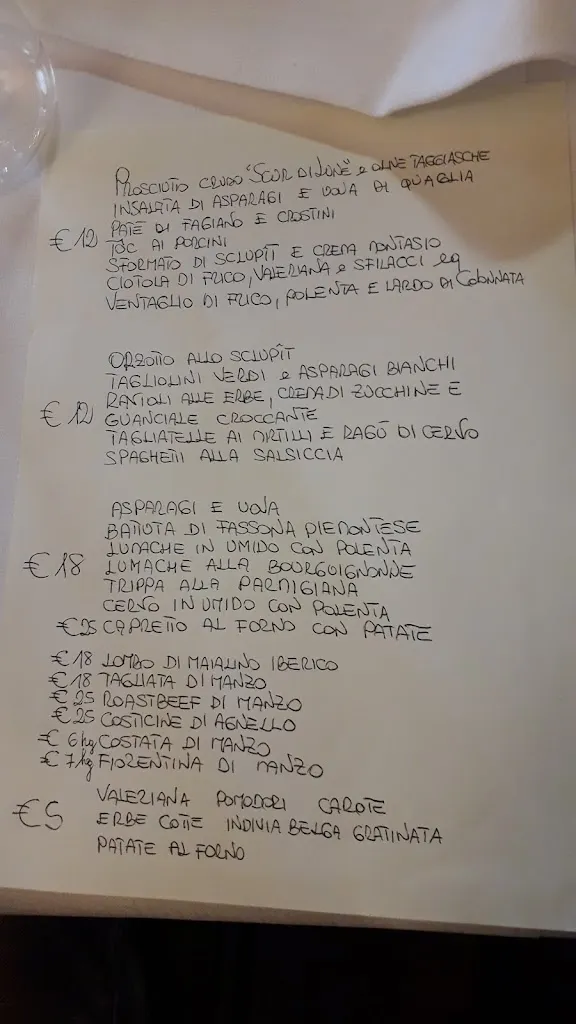 PROSCIUTTO CRUDO "SCUR DI LUNE" e OLIVE TAGGIASCHE
INSALATA DI ASPARAGI E UOVA DI QUAGLIA
PATÈ DI FAGIANO E CROSTINI
€ 12
TOC AI PORCINI
SFORMATO DI SCLUPIT E CREMA MONTASIO
CIOTOLA DI FRICO, VALERIANA e SFILACCI
VENTAGLIO DI FRICO, POLENTA E LARDO DI COLONNATA
ORZOTTO ALLO SCLUPÎT
TAGLIOLINI VERDI e ASPARAGI BIANCHI
RAVIOLI ALLE ERBE, CREMA DI ZUCCHINE E
€ 12 GUANCIALE CROCCANTE
TAGLIATELLE AI MIRTILLI E RAGÙ DI CERVO
SPAGHETTI ALLA SALSICCIA
ASPARAGI E UOVA
BATTUTA DI FASSONA PIEMONTESE
LUMACHE IN UMIDO CON POLENTA
€ 18 LUMACHE ALLA BOURGUIGNONNE
TRIPPA ALLA PARMIGIANA
CERVO IN UMIDO CON POLENTA
€ 25 CAPRETTO AL FORNO CON PATATE
€ 18 LOMBO DI MAIALINO IBERICO
€ 18 TAGLIATA DI MANZO
€ 25 ROASTBEEF DI MANZO
€ 25 COSTICINE DI AGNELLO
€ 6 hg COSTATA DI MANZO
€ 7 hg FIORENTINA DI MANZO
VALERIANA POMODORI CAROTE
€ 5 ERBE COTTE INDIVIA BELGA GRATINATA
PATATE AL FORNO